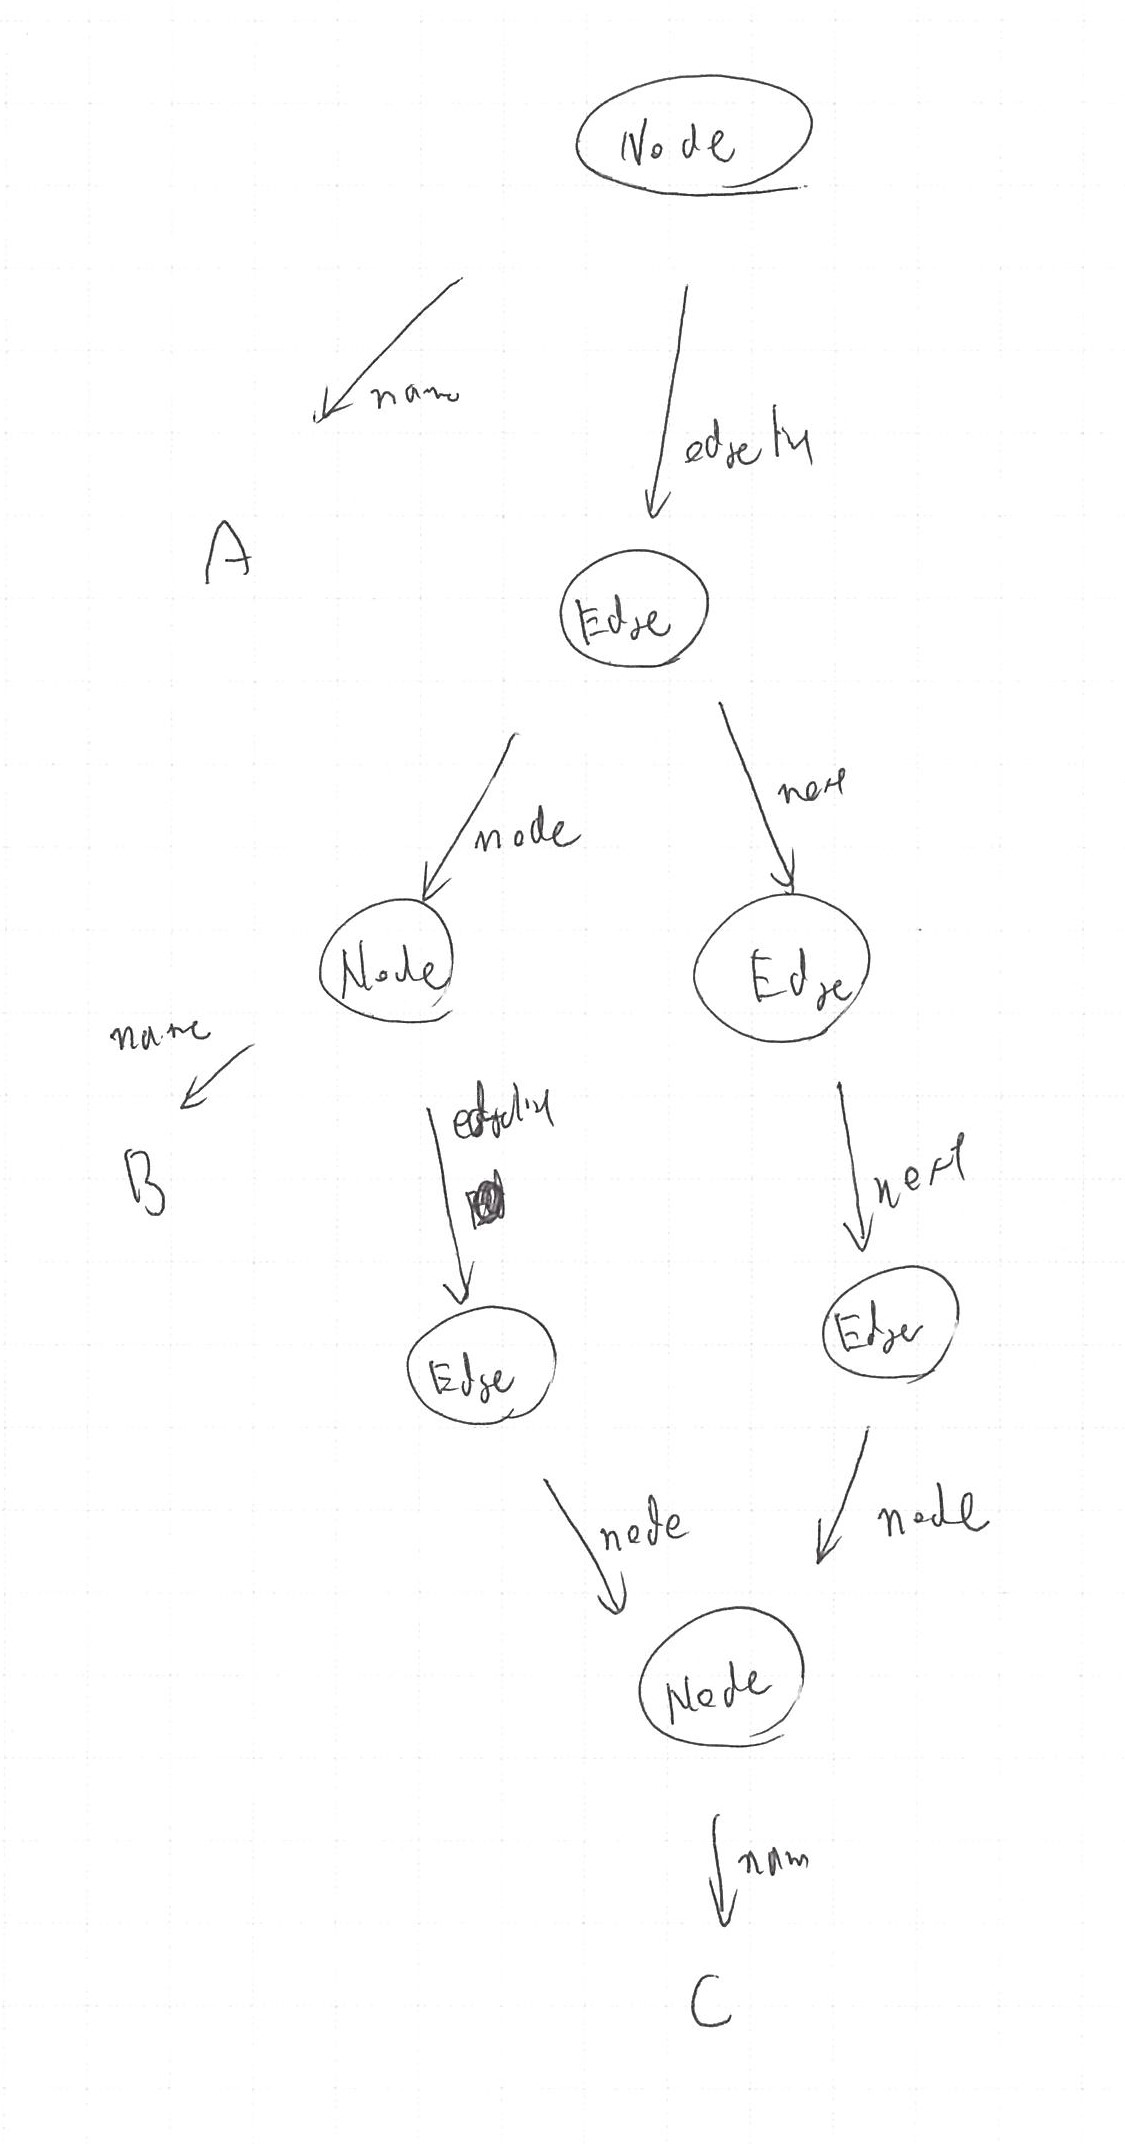 Node
name
edgelist
A
Edge
next
node
Node
Edge
name
edgelist
B
next
Edge
Edge
node
node
Node
nam
C